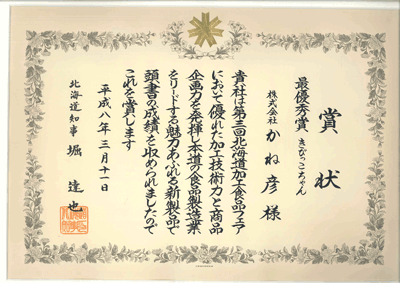 賞状
最優秀賞 きびっこちゃん
株式会社 かね彦 様
貴社は第三回北海道加工食品フェア
において優れた加工技術力と商品
企画力を発揮し本道の食品製造業
をリードする魅力あふれる新製品で
頭書の成績を収められましたので
これを賞します
平成八年三月十一日
北海道知事 堀 達也